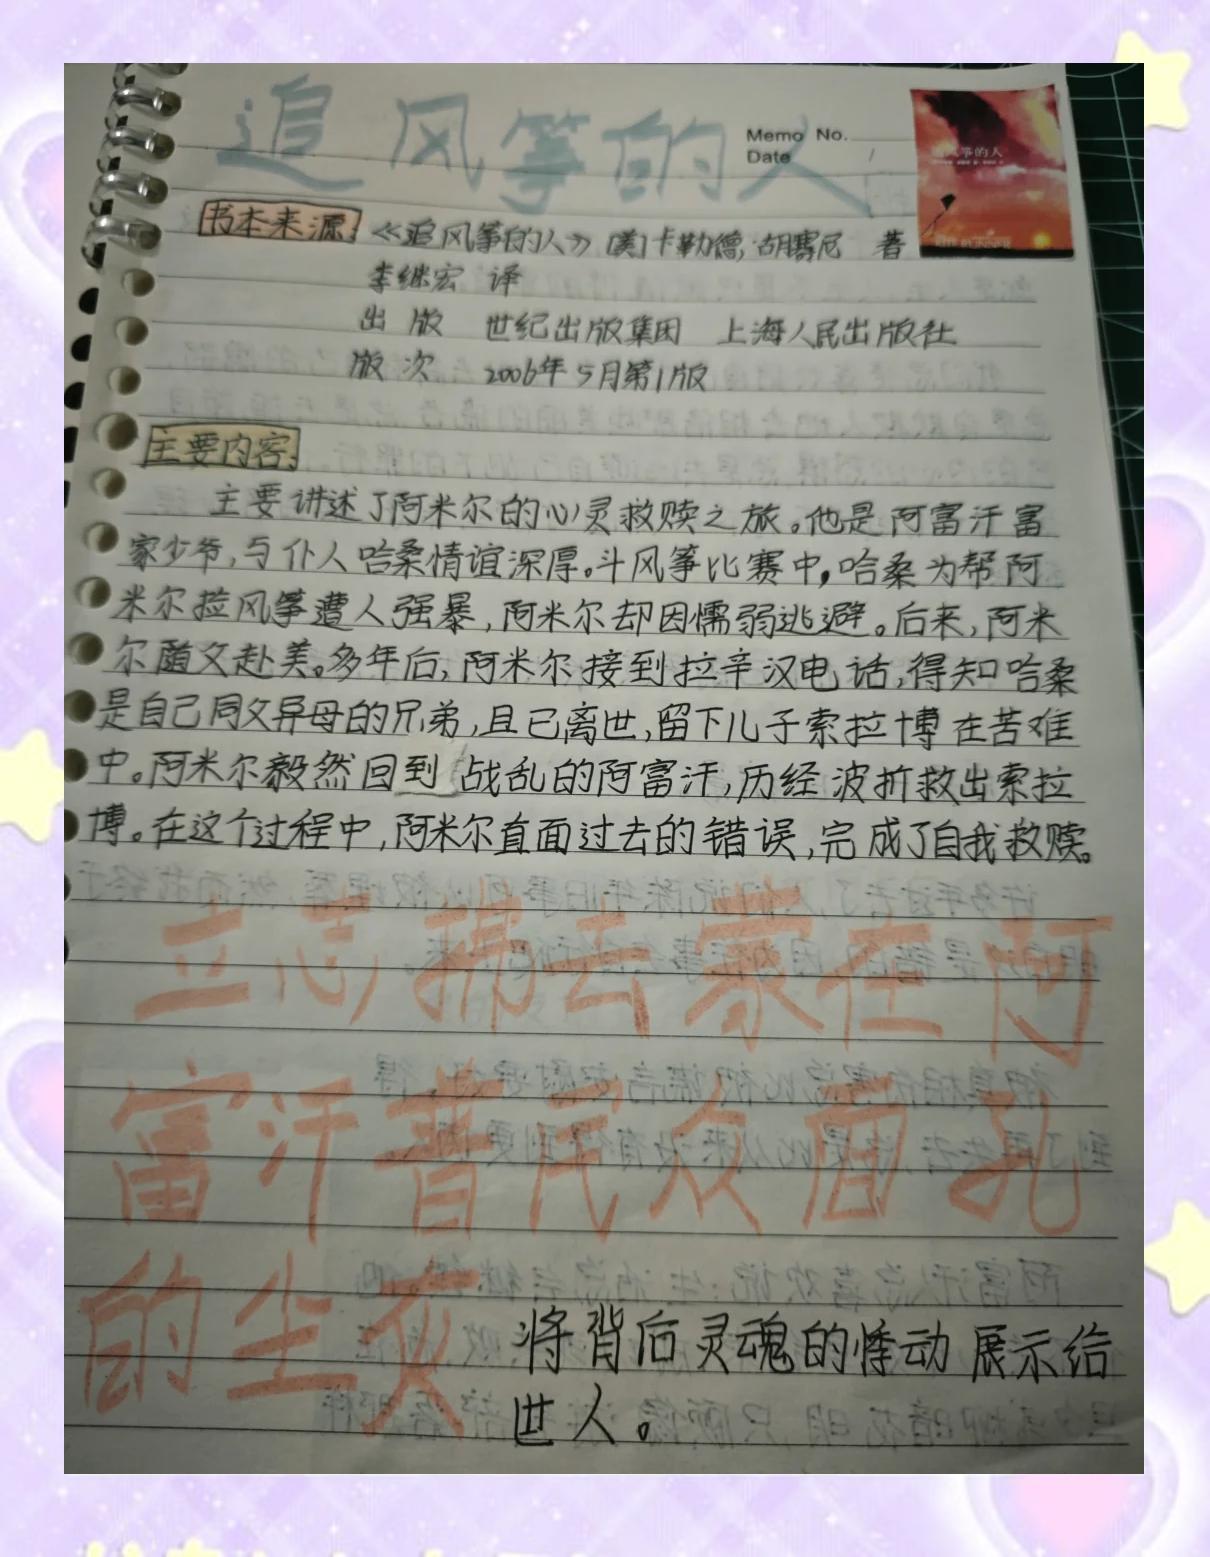 追风筝的人
Memo No.
Date /
书本来源: 《追风筝的人》 [美]卡勒德·胡赛尼 著
李继宏 译
出 版 世纪出版集团 上海人民出版社
版 次 2006年5月第1版
主要内容:
主要讲述了阿米尔的心灵救赎之旅。他是阿富汗富
家少爷,与仆人哈桑情谊深厚。斗风筝比赛中,哈桑为帮阿
米尔捡风筝遭人强暴,阿米尔却因懦弱逃避。后来,阿米
尔随父赴美。多年后,阿米尔接到拉辛汉电话,得知哈桑
是自己同父异母的兄弟,且已离世,留下儿子索拉博在苦难
中。阿米尔毅然回到战乱的阿富汗,历经波折救出索拉
博。在这个过程中,阿米尔直面过去的错误,完成了自我救赎。
立志拂去蒙在阿
富汗普民众面孔
的尘灰
将背后灵魂的悸动展示给
世人。